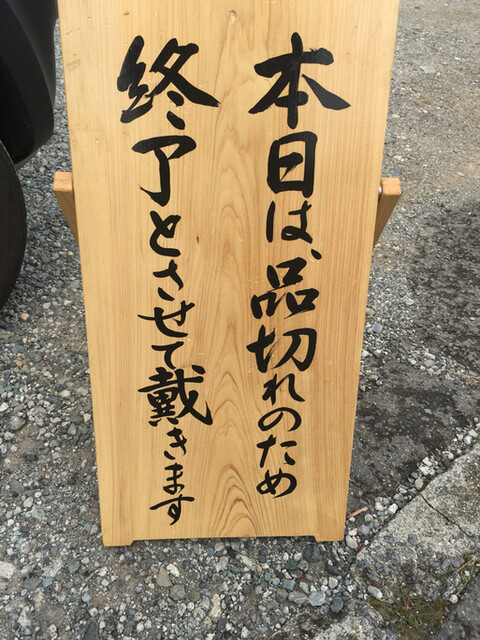 本日は、品切れのため
終了とさせて戴きます